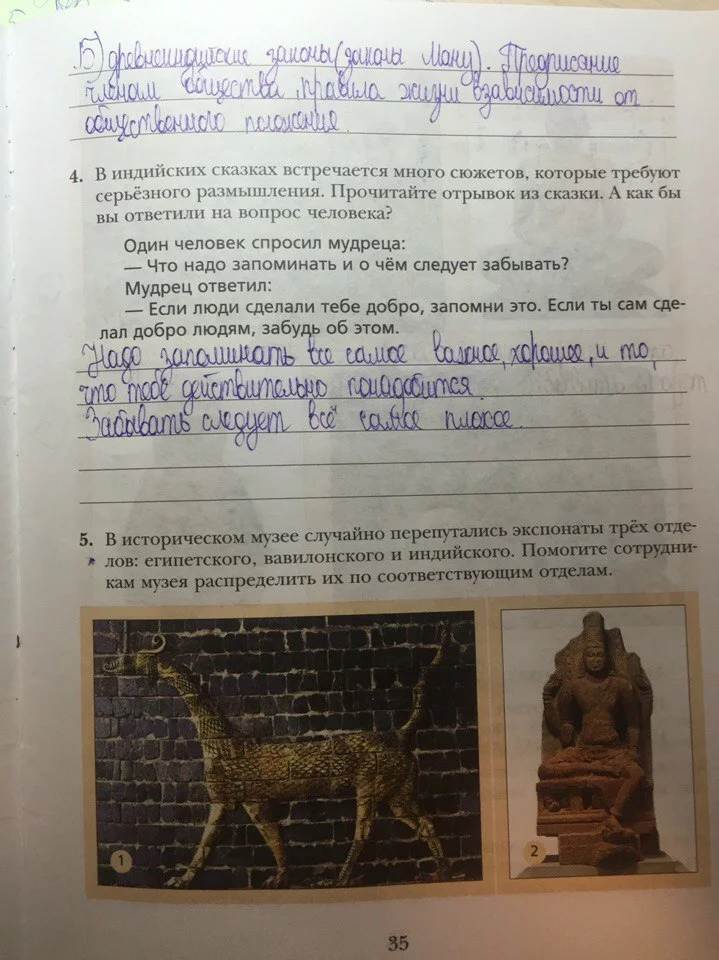 Б) древнеиндийские законы (законы Ману). Предписание
членам общества, правила жизни взависимости от
общественного положения.
4. В индийских сказках встречается много сюжетов, которые требуют
серьёзного размышления. Прочитайте отрывок из сказки. А как бы
вы ответили на вопрос человека?
Один человек спросил мудреца:
— Что надо запоминать и о чём следует забывать?
Мудрец ответил:
— Если люди сделали тебе добро, запомни это. Если ты сам сде-
лал добро людям, забудь об этом.
Надо запоминать все самое важное, хорошее, и то,
что тебе действительно понадобится.
Забывать следует всё самое плохое.
5. В историческом музее случайно перепутались экспонаты трёх отде-
лов: египетского, вавилонского и индийского. Помогите сотрудни-
кам музея распределить их по соответствующим отделам.
1
2
35